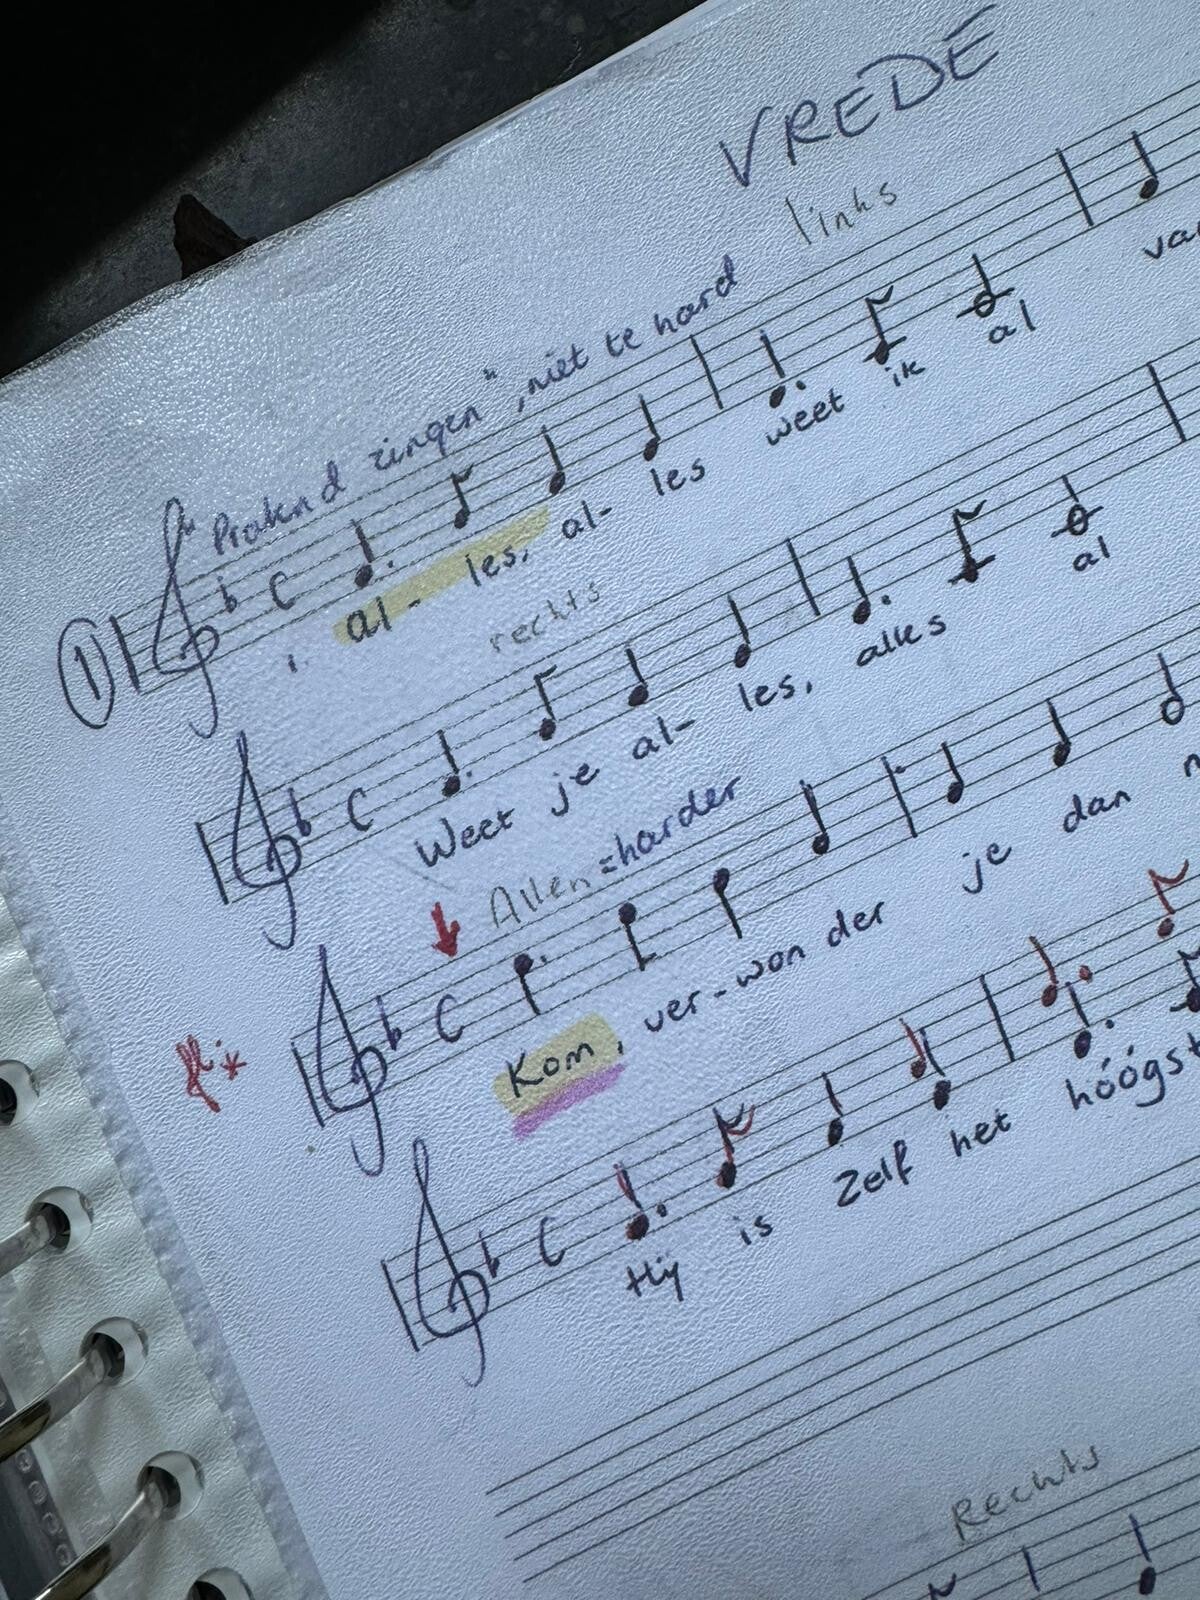 VREDE
links
"Pratend zingen", niet te hard
1
C
1. al- les, al- les weet ik al
rechts
C
Weet je al- les, alles al
Allen = harder
C
Kom, ver-won der je dan
C
Hij is Zelf het hóógst
Rechts